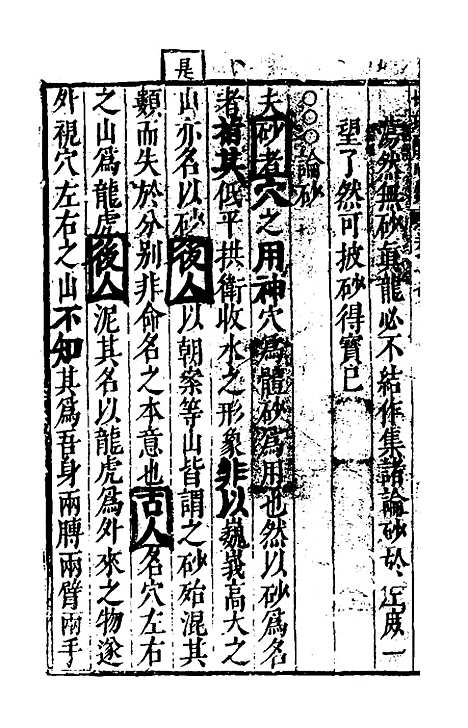 是
蕩然無砂眞龍必不結作集諸論砂於 庶一
望了然可披砂得寶已
○○○論砂
夫砂者穴之用神穴爲體砂爲用也然以砂爲名
者指其低平拱衛收水之形象非以巍峩高大之
山亦名以砂後人以朝案等山皆謂之砂殆混其
類而失於分别非命名之本意也古人名穴左右
之山爲龍虎後人泥其名以龍虎爲外來之物遂
外視穴左右之山不知其爲吾身兩膊兩臂兩手